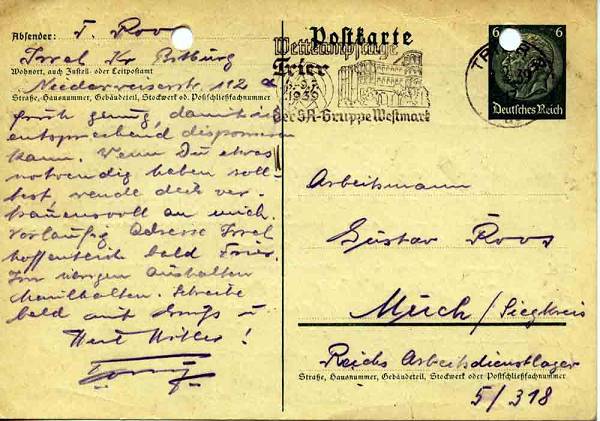 Absender: T. Roos
Irrel Kr Bitburg
Wohnort, auch Zustell- oder Leitpostamt
Niederweiserstr 112 a
Straße, Hausnummer, Gebäudeteil, Stockwerk od. Postschließfachnummer
früh genug, damit ich
entsprechend disponieren
kann. Wenn Du etwas
notwendig haben soll-
test, wende dich ver-
trauensvoll an mich.
Vorläufig Adresse Irrel
hoffentlich bald Trier.
Im übrigen Aushalten
Maulhalten. Schreibe
bald mit Gruß u
Heil Hitler!
Postkarte
Wettkampftage
Trier
1939
der SA-Gruppe Westmark
TRIER
6 6
Deutsches Reich
Arbeitsmann
Gustav Roos
Much / Siegkreis
Reichs Arbeitsdienstlager
Straße, Hausnummer, Gebäudeteil, Stockwerk oder Postschließfachnummer
5/318